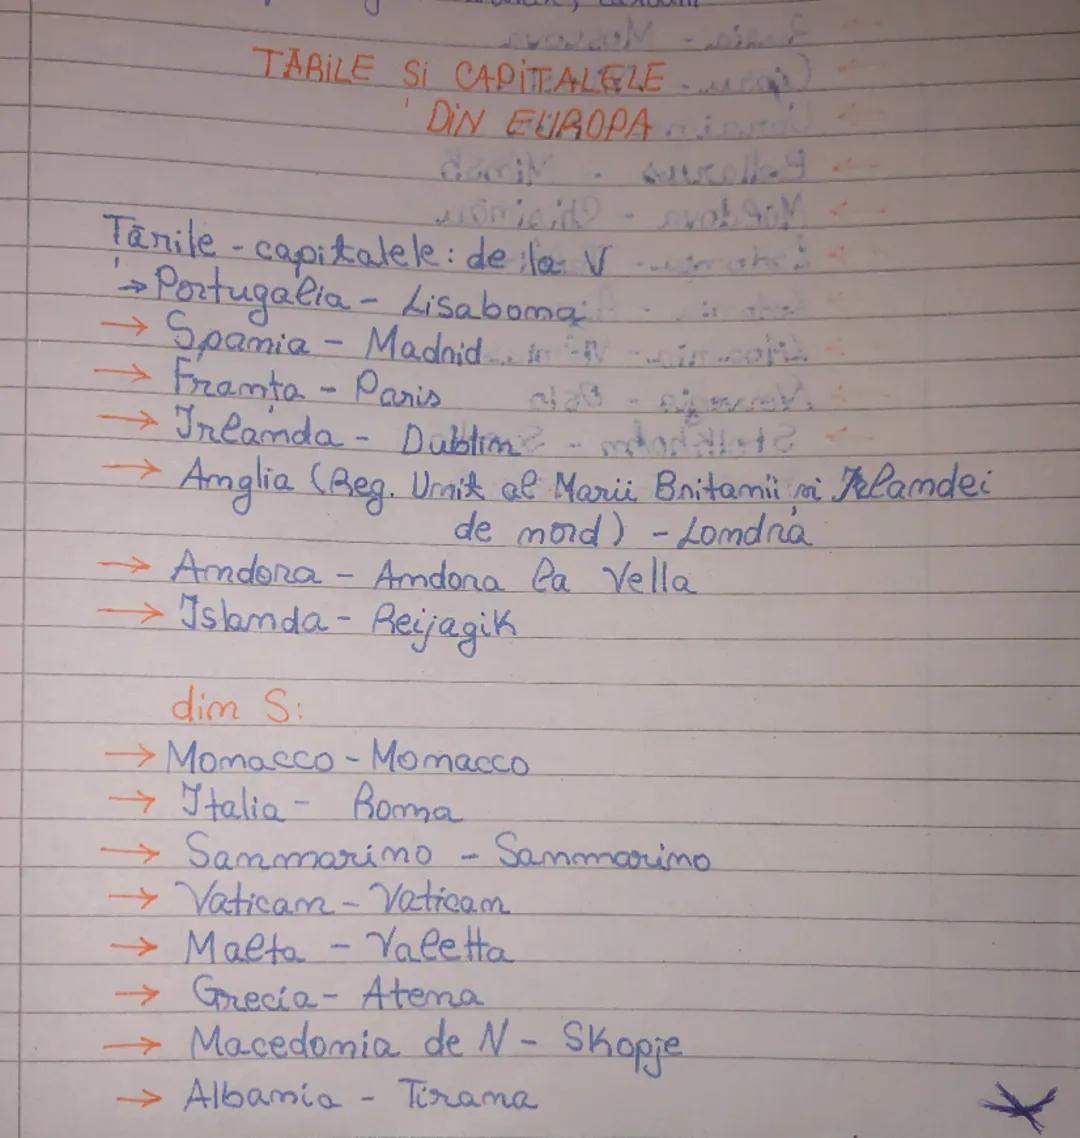 ȚĂRILE ȘI CAPITALELE
DIN EUROPA
Țările - capitalele: de la V
→ Portugalia - Lisabona
→ Spania - Madrid
→ Franța - Paris
→ Irlanda - Dublin
→ Anglia (Reg. Unit al Marii Britanii și Irlandei
de nord) - Londra
→ Andora - Andora la Vella
→ Islanda - Reijagik
din S:
→ Monacco - Monacco
→ Italia - Roma
→ Sanmarino - Sanmarino
→ Vatican - Vatican
→ Malta - Valetta
→ Grecia - Atena
→ Macedonia de N - Skopje
→ Albania - Tirana